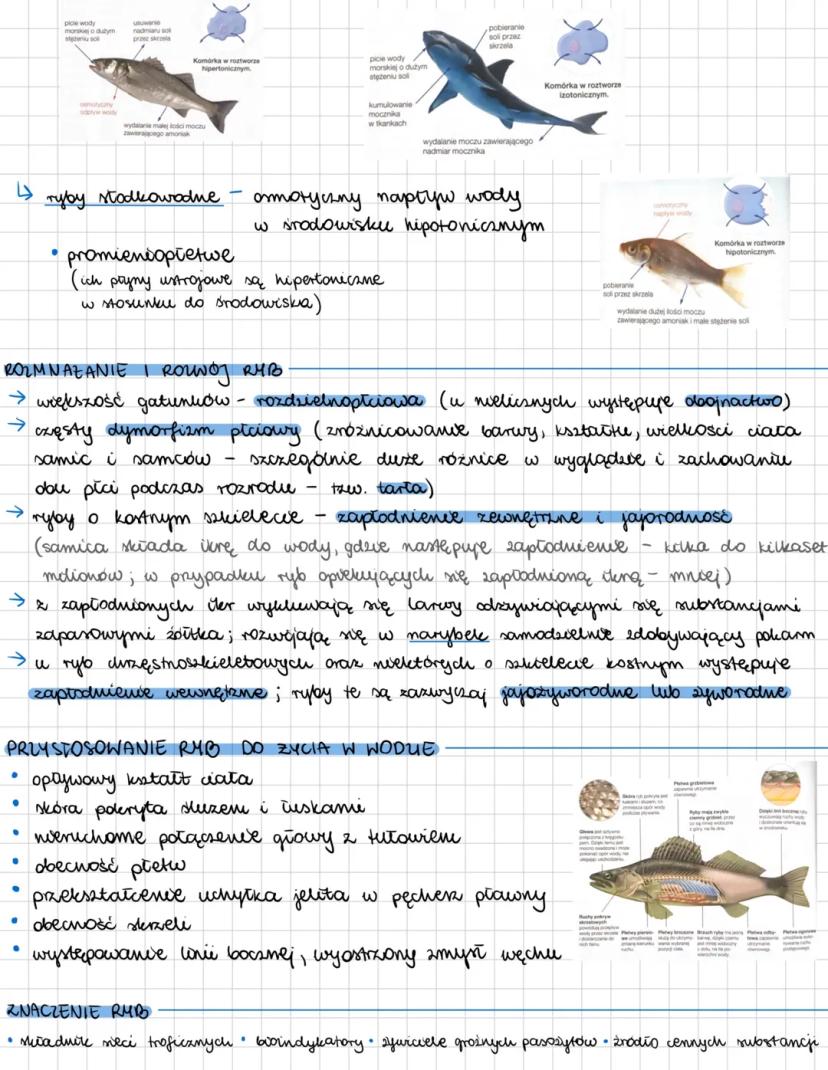 picie wody
morskiej o dużym
stężeniu soli
usuwanie
nadmiaru soli
przez skrzela
Komórka w roztworze
hipertonicznym.
osmotyczny
odpływ wody
wydalanie małej ilości moczu
zawierającego amoniak
pobieranie
soli przez
skrzela
picie wody
morskiej o dużym
stężeniu soli
Komórka w roztworze
izotonicznym.
kumulowanie
mocznika
w tkankach
wydalanie moczu zawierającego
nadmiar mocznika
↳ ryby słodkowodne – osmotyczny napływ wody
w środowisku hipotonicznym
• promieniopłetwe
(ich płyny ustrojowe są hipertoniczne
w stosunku do środowiska)
osmotyczny
napływ wody
Komórka w roztworze
hipotonicznym.
pobieranie
soli przez skrzela
wydalanie dużej ilości moczu
zawierającego amoniak i małe stężenie soli
ROZMNAŻANIE I ROZWÓJ RYB
→ większość gatunków – rozdzielnopłciowa (u nielicznych występuje obojnactwo)
→ częsty dymorfizm płciowy (zróżnicowanie barwy, kształtu, wielkości ciała
samic i samców – szczególnie duże różnice w wyglądzie i zachowaniu
obu płci podczas rozrodu – tzw. tarła)
→ ryby o kostnym szkielecie – zapłodnienie zewnętrzne i jajorodność
(samica składa ikrę do wody, gdzie następuje zapłodnienie – kilka do kilkaset
milionów; w przypadku ryb opiekujących się zapłodnioną ikrą – mniej)
→ z zapłodnionych ikr wykluwają się larwy odżywiającymi się substancjami
zapasowymi żółtka; rozwijają się w narybek samodzielnie zdobywający pokarm
→ u ryb chrzęstnoszkieletowych oraz niektórych o szkielecie kostnym występuje
zapłodnienie wewnętrzne; ryby te są zazwyczaj jajożyworodne lub żyworodne
PRZYSTOSOWANIE RYB DO ŻYCIA W WODZIE
• opływowy kształt ciała
• skóra pokryta śluzem i łuskami
• nieruchome połączenie głowy z tułowiem
• obecność płetw
• przekształcenie uchyłka jelita w pęcherz pławny
• obecność skrzeli
• występowanie linii bocznej, wyostrzony zmysł węchu
Płetwa grzbietowa
zapewnia utrzymanie
równowagi.
Skóra ryb pokryta jest
łuskami i śluzem, co
zmniejsza opór wody
podczas pływania.
Ryby mają zwykle
ciemny grzbiet, przez
co są mniej widoczne
z góry, na tle dna.
Dzięki linii bocznej ryby
wyczuwają ruchy wody
i doskonale orientują się
w środowisku.
Ruchy pokryw
skrzelowych
ZNACZENIE RYB
• składnik sieci troficznych • bioindykatory • żywiciele groźnych pasożytów • źródło cennych substancji